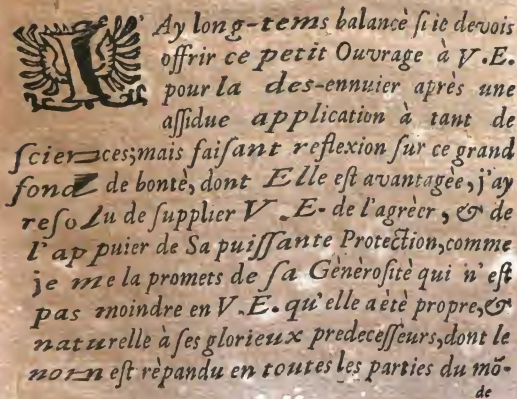 I'Ay long-tems balancè ſi ie devois
offrir ce petit Ouvrage à V.E.
pour la des-ennuier après une
aſſidue application à tant de
ſciences; mais faiſant reflexion ſur ce grand
fond de bontè, dont Elle eſt avantagée, j'ay
reſolu de ſupplier V.E. de l'agrèer, & de
l'appuier de Sa puiſſante Protection, comme
je me la promets de ſa Gènèroſitè qui n'eſt
pas moindre en V.E. qu'elle a ètè propre, &
naturelle à ſes glorieux predeceſſeurs, dont le
nom eſt rèpandu en toutes les parties du mõ-
de